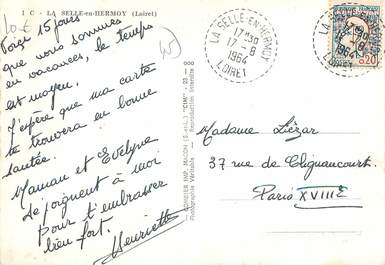 10 €
I C - LA SELLE-en-HERMOY (Loiret)
Voici 15 jours
que nous sommes
en vacances, le temps
est moyen.
J'espère que ma carte
te trouvera en bonne
santée.
Maman et Evelyne
se joignent à moi
pour t'embrasser
bien fort.
Henriette
COMBIER IMP. MACON (S.-et-L.) "CIM"
Photographie Véritable - Reproduction Interdite
LA SELLE-EN-HERMOY
17H30
17-8
1964
LOIRET
0,20
Madame Liézar
37 rue de Clignancourt.
Paris XVIIIE